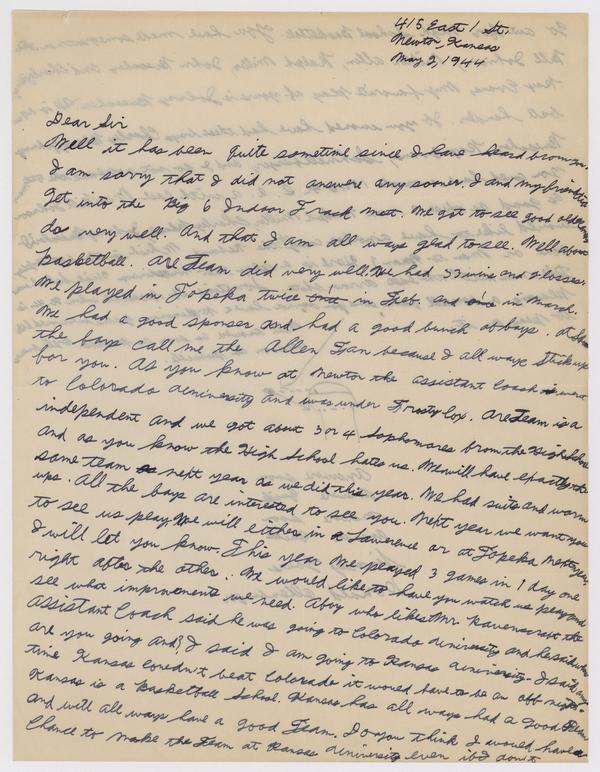 415 East 1 St.
Newton, Kansas
May 2, 1944
Dear Sir
Well it has been quite sometime since I have heard from you.
I am sorry that I did not answer any sooner. I and my friend
get into the Big 6 Indoor Track meet. We got to see good old
do very well. And that I am all ways glad to see. Well about
basketball. Are Team did very well. We had 33 wins and 9 losses.
We played in Topeka twice once in Feb. and once in march.
We had a good sponser and had a good bunch of boys. At
the boys call me the Allen Fan because I all ways stick up
for you. As you know at Newton the assistant Coach went
to Colorado University and was under Frosty Cox. Are Team is a
independent and we got about 3 or 4 Sophomores from the High School
and as you know the High School hates us. We will have exactly the
same team next year as we did this year. We had suits and warm
ups. All the boys are interested to see you. Next year we want you
to see us play. We will either in Lawrence or at Topeka next year
I will let you know. This year we played 3 games in 1 day one
right after the other. We would like to have you watch us play and
see what imprvments we need. A boy who likes Mr. Ravenscraft the
assistant Coach said he was going to Colorado University and he said where
are you going and I said I am going to Kansas University. I said any
time Kansas couldn't beat Colorado it would have to be an off night.
Kansas is a Basketball School. Kansas has all ways had a good Team
and will all ways have a good Team. Do you think I would have a
Chance to make the Team at Kansas University even if I don't